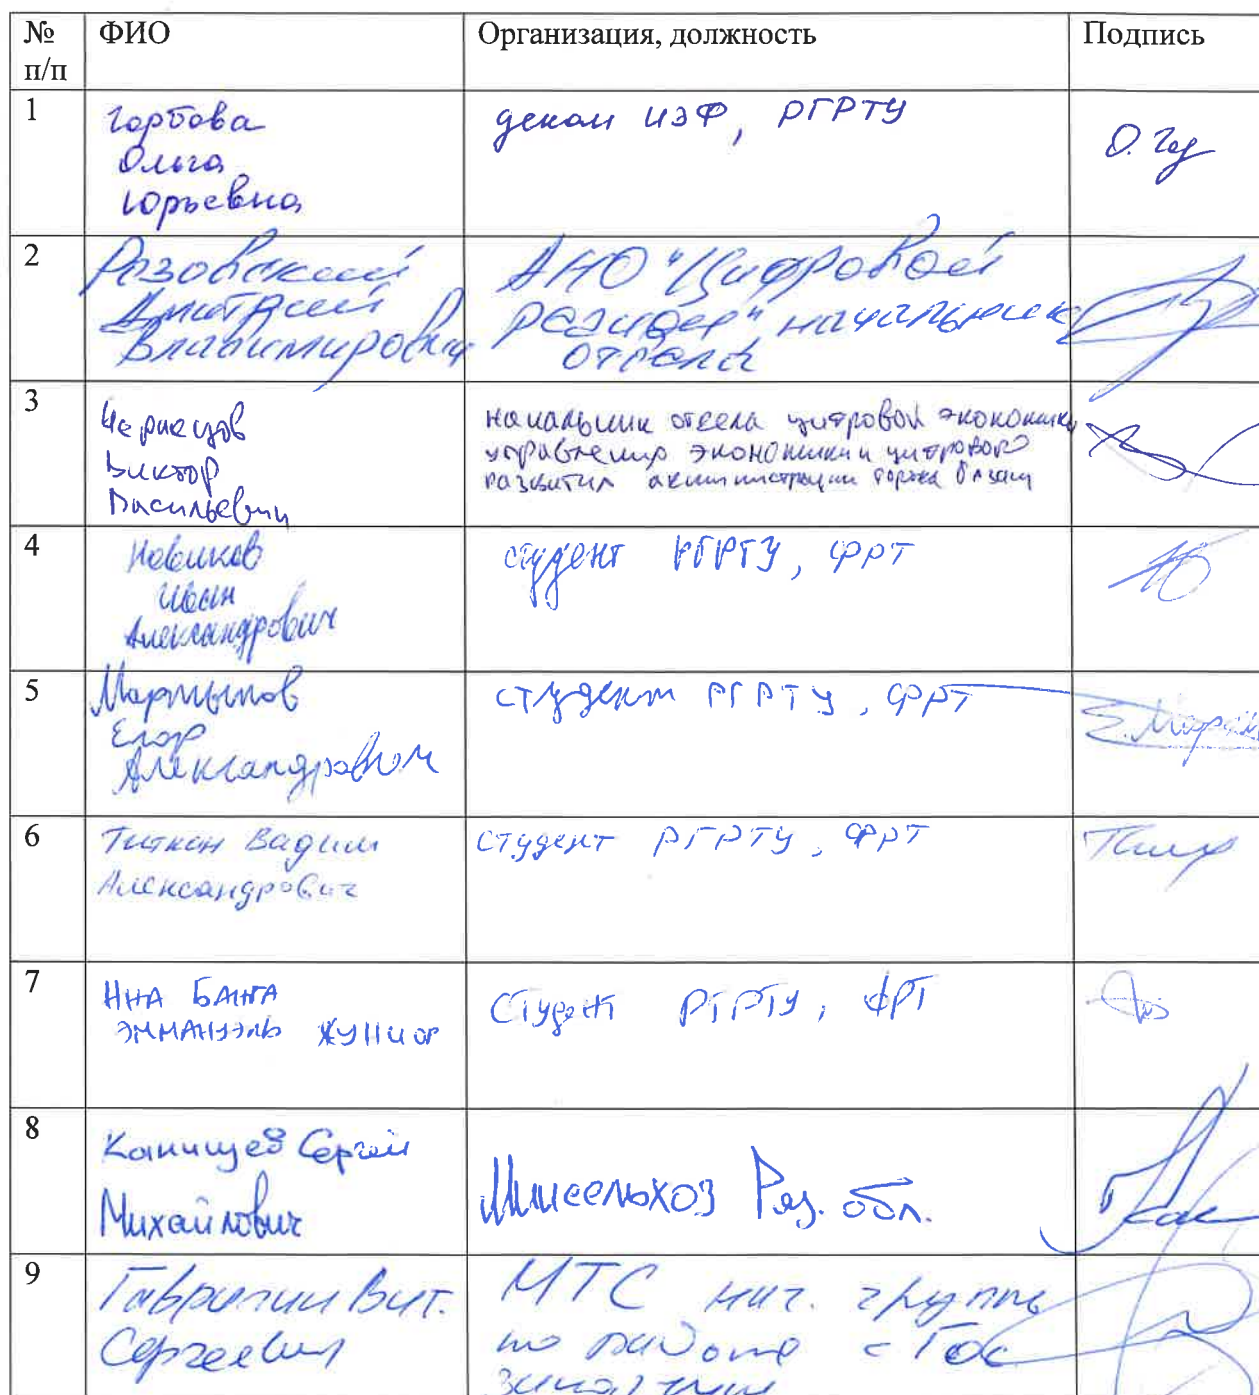 № п/п
ФИО
Организация, должность
Подпись
1
Горбова
Ольга
Юрьевна
декан ИЭФ, РГРТУ
2
Розовский
Дмитрий
Владимирович
АНО "Цифровой
регион" начальник
отдела
3
Чернецов
Виктор
Васильевич
начальник отдела цифровой экономики
управления экономики и цифрового
развития администрации города Рязани
4
Новиков
Иван
Александрович
студент РГРТУ, ФРТ
5
Мартынов
Егор
Александрович
студент РГРТУ, ФРТ
6
Титкин Вадим
Александрович
студент РГРТУ, ФРТ
7
ННА БАНГА
ЭММАНУЭЛЬ ЖУНИОР
Студент РГРТУ, ФРТ
8
Канищев Сергей
Михайлович
Минсельхоз Ряз. обл.
9
Гаврилин Вит.
Сергеевич
МТС нач. группы
по работе с Гос
заказчик